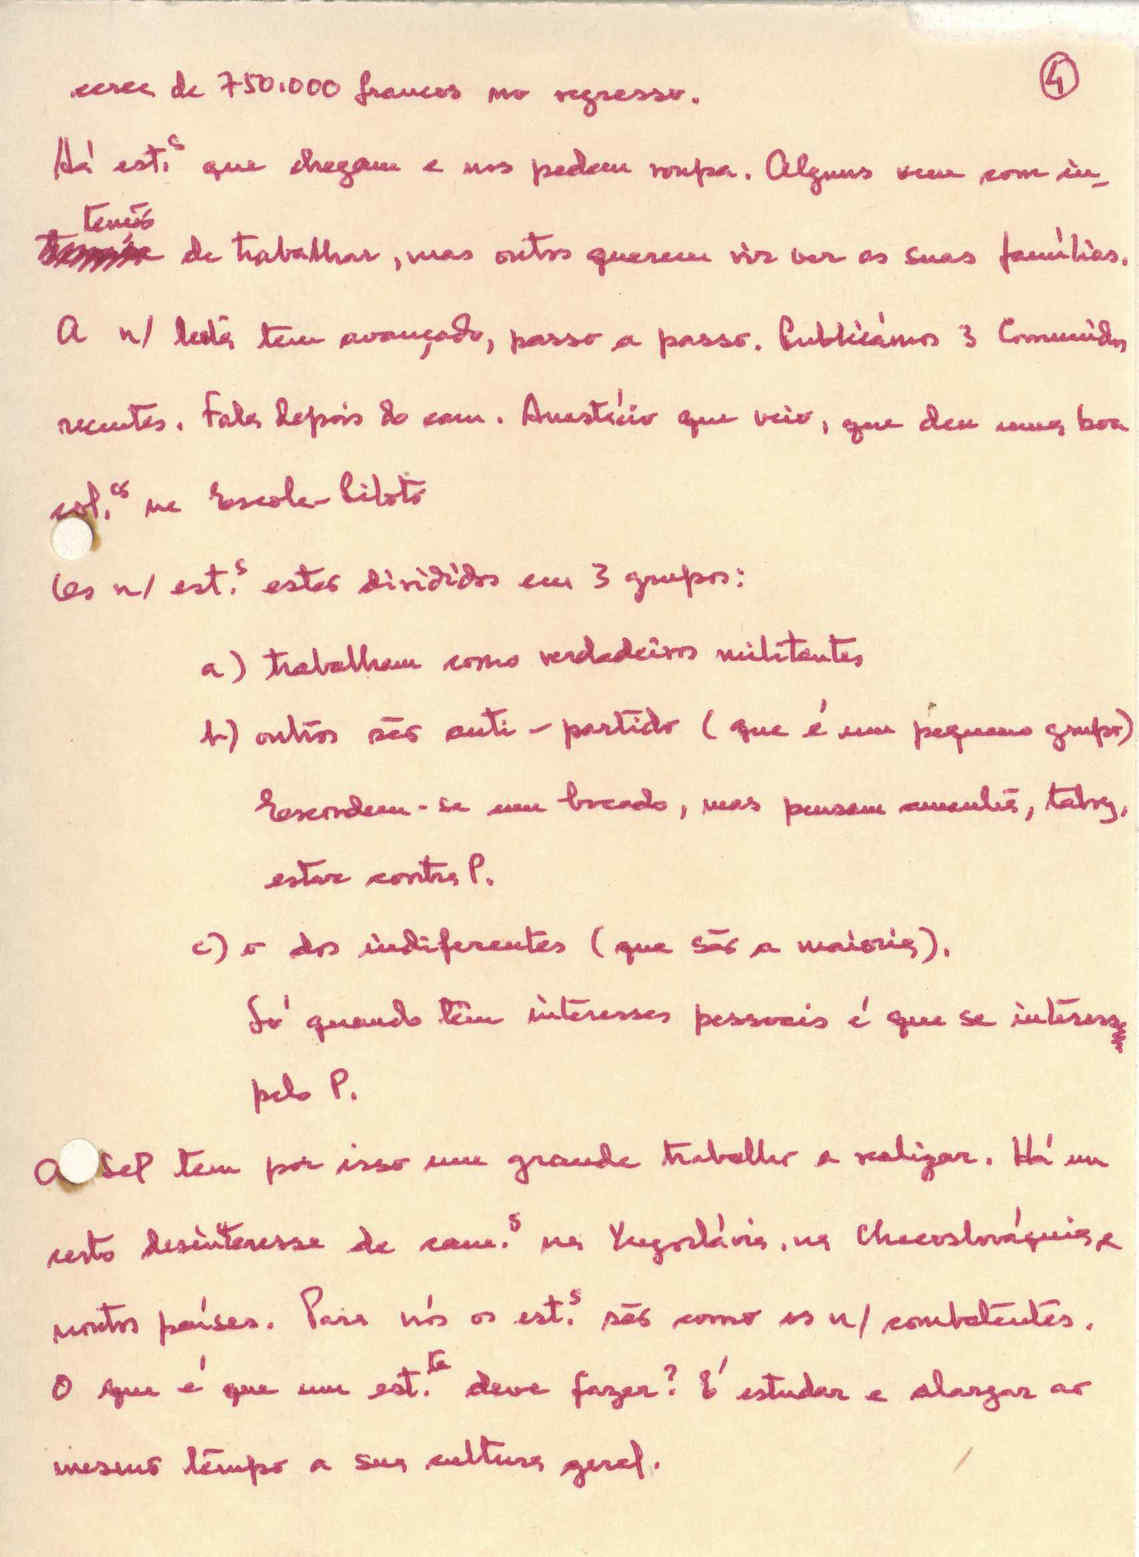 4
cerca de 750.000 francos no regresso.
Há est.s que chegam e nos pedem roupa. Alguns vem com in-
tenção de trabalhar, mas outros querem vir ver as suas famílias.
A n/ luta tem avançado, passo a passo. Publicámos 3 Comunicados
recentes. Fala depois do cam. Anastácio que veio, que deu uma boa
col.ão na Escola-Piloto
Os n/ est.s estão divididos em 3 grupos:
a) trabalham como verdadeiros militantes
b) outros são anti-partido (que é um pequeno grupo)
Escondem-se um bocado, mas pensam amanhã, talvez,
estar contra P.
c) o dos indiferentes (que são a maioria).
Só quando têm interesses pessoais é que se interess
pelo P.
O Sel tem por isso um grande trabalho a realizar. Há um
certo desinteresse de cam.s na Yugoslávia, na Checoslováquia e
noutros países. Para nós os est.s são como os n/ combatentes.
O que é que um est.te deve fazer? É estudar e alargar ao
mesmo tempo a sua cultura geral.